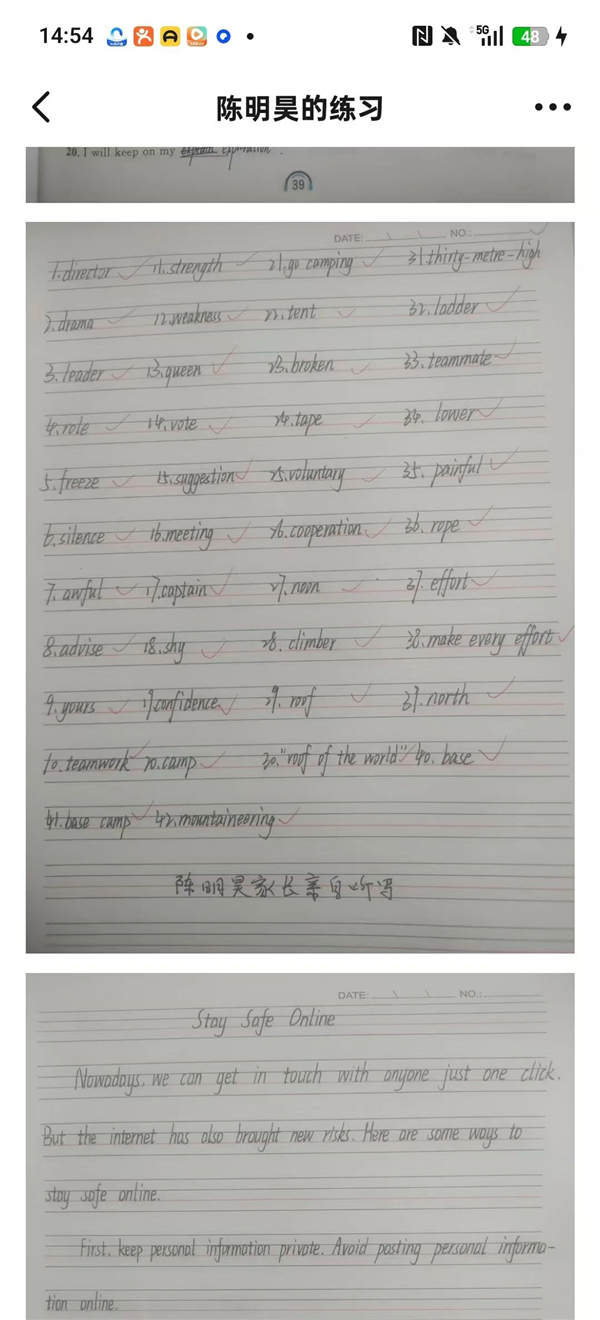 14:54 5G 48
陈明昊的练习
20. I will keep on my explanation.
39
DATE: NO.:
1.director 11.strength 21.go camping 31.thirty-metre-high
2.drama 12.weakness 22.tent 32.ladder
3.leader 13.queen 23.broken 33.teammate
4.role 14.vote 24.tape 34. lower
5.freeze 15.suggestion 25.voluntary 35. painful
6.silence 16.meeting 26.cooperation 36. rope
7. awful 17.captain 27.noon 37. effort
8.advise 18.shy 28. climber 38.make every effort
9.yours 19.confidence 29. roof 39.north
10.teamwork 20.camp 30."roof of the world" 40. base
41.base camp 42.mountaineering
陈明昊家长亲自听写
DATE: NO.:
Stay Safe Online
Nowadays, we can get in touch with anyone just one click.
But the internet has also brought new risks. Here are some ways to
stay safe online.
First, keep personal information private. Avoid posting personal informa-
tion online.